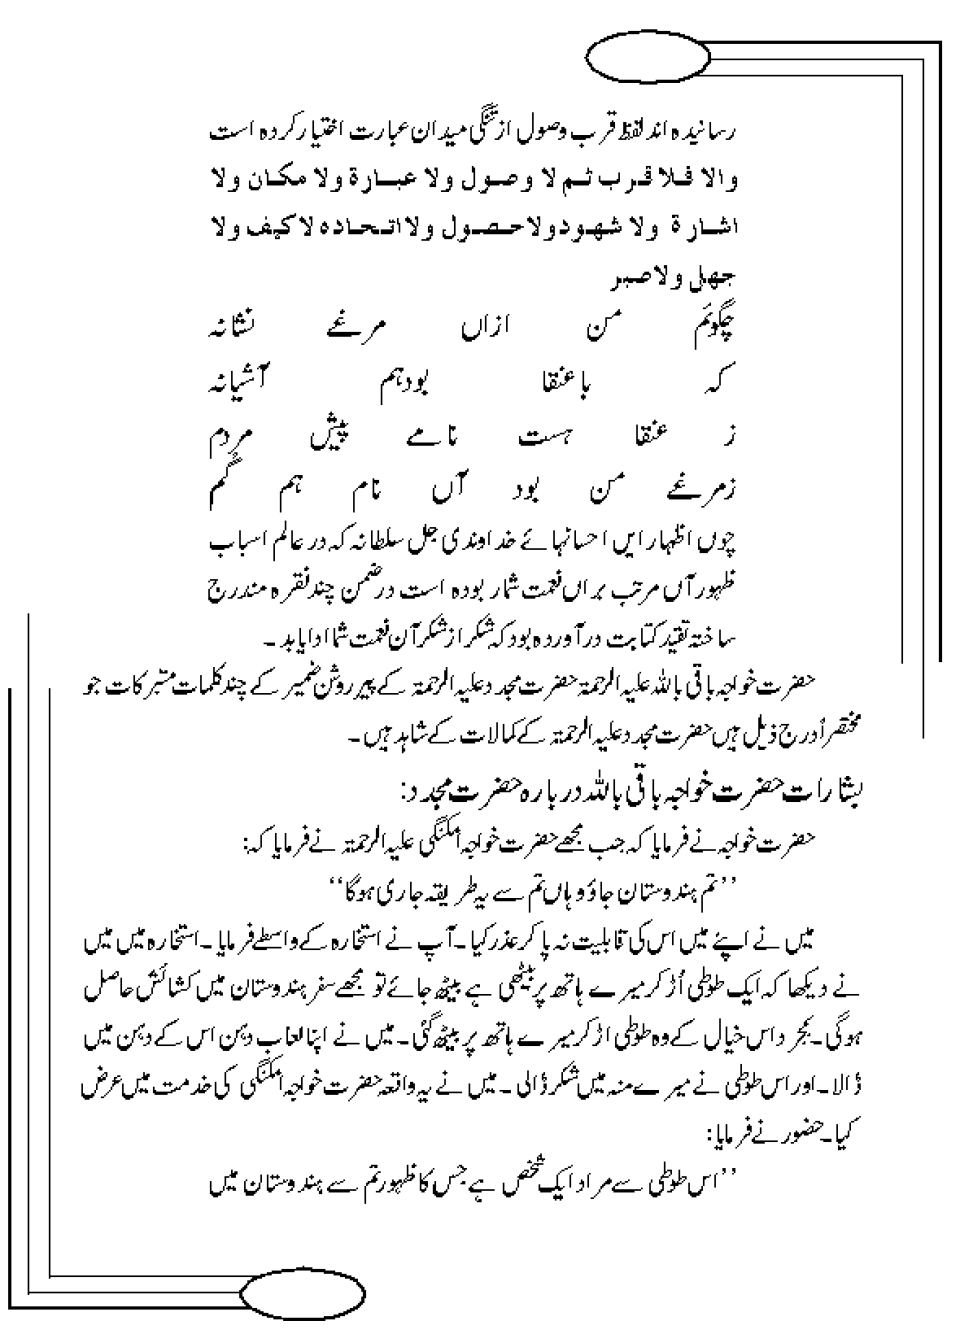 رسانیدہ اند لفظ قرب وصول از تنگی میدان عبارت اختیار کردہ است
والا فلا قرب ثم لا وصول ولا عبارة ولا مکان ولا
اشارة ولا شهود ولا حصول ولا اتحاده لا کیف ولا
جهل ولا صبر
چگوئم من ازاں مرغے نشانہ
کہ با عنقا بود ہم آشیانہ
ز عنقا ہست نامے پیش مردم
زمرغے من بود آں نام ہم گُم
چوں اظہار ایں احسانہائے خداوندی جل سلطانہ کہ در عالم اسباب
ظہور آں مرتب براں نعمت شمار بودہ است در ضمن چند فقرہ مندرج
ساختہ تقید کتابت در آوردہ بود کہ شکر از شکر آن نعمت شما ادا یابد ۔
حضرت خواجہ باقی باللہ علیہ الرحمۃ حضرت مجدد علیہ الرحمۃ کے پیر روشن ضمیر کے چند کلمات متبرکات جو
مختصراً درج ذیل ہیں حضرت مجدد علیہ الرحمۃ کے کمالات کے شاہد ہیں ۔
بشارات حضرت خواجہ باقی باللہ دربارہ حضرت مجدد:
حضرت خواجہ نے فرمایا کہ جب مجھے حضرت خواجہ امکنگی علیہ الرحمۃ نے فرمایا کہ:
’’تم ہندوستان جاؤ وہاں تم سے یہ طریقہ جاری ہوگا‘‘
میں نے اپنے میں اس کی قابلیت نہ پا کر عذر کیا ۔ آپ نے استخارہ کے واسطے فرمایا ۔ استخارہ میں میں
نے دیکھا کہ ایک طوطی اُڑ کر میرے ہاتھ پر بیٹھی ہے بیٹھ جائے تو مجھے سفر ہندوستان میں کشائش حاصل
ہوگی ۔ بمجرد اس خیال کے وہ طوطی اڑ کر میرے ہاتھ پر بیٹھ گئی ۔ میں نے اپنا لعاب دہن اس کے دہن میں
ڈالا ۔ اور اس طوطی نے میرے منہ میں شکر ڈالی ۔ میں نے یہ واقعہ حضرت خواجہ امکنگی کی خدمت میں عرض
کیا ۔ حضور نے فرمایا:
’’اس طوطی سے مراد ایک شخص ہے جس کا ظہور تم سے ہندوستان میں